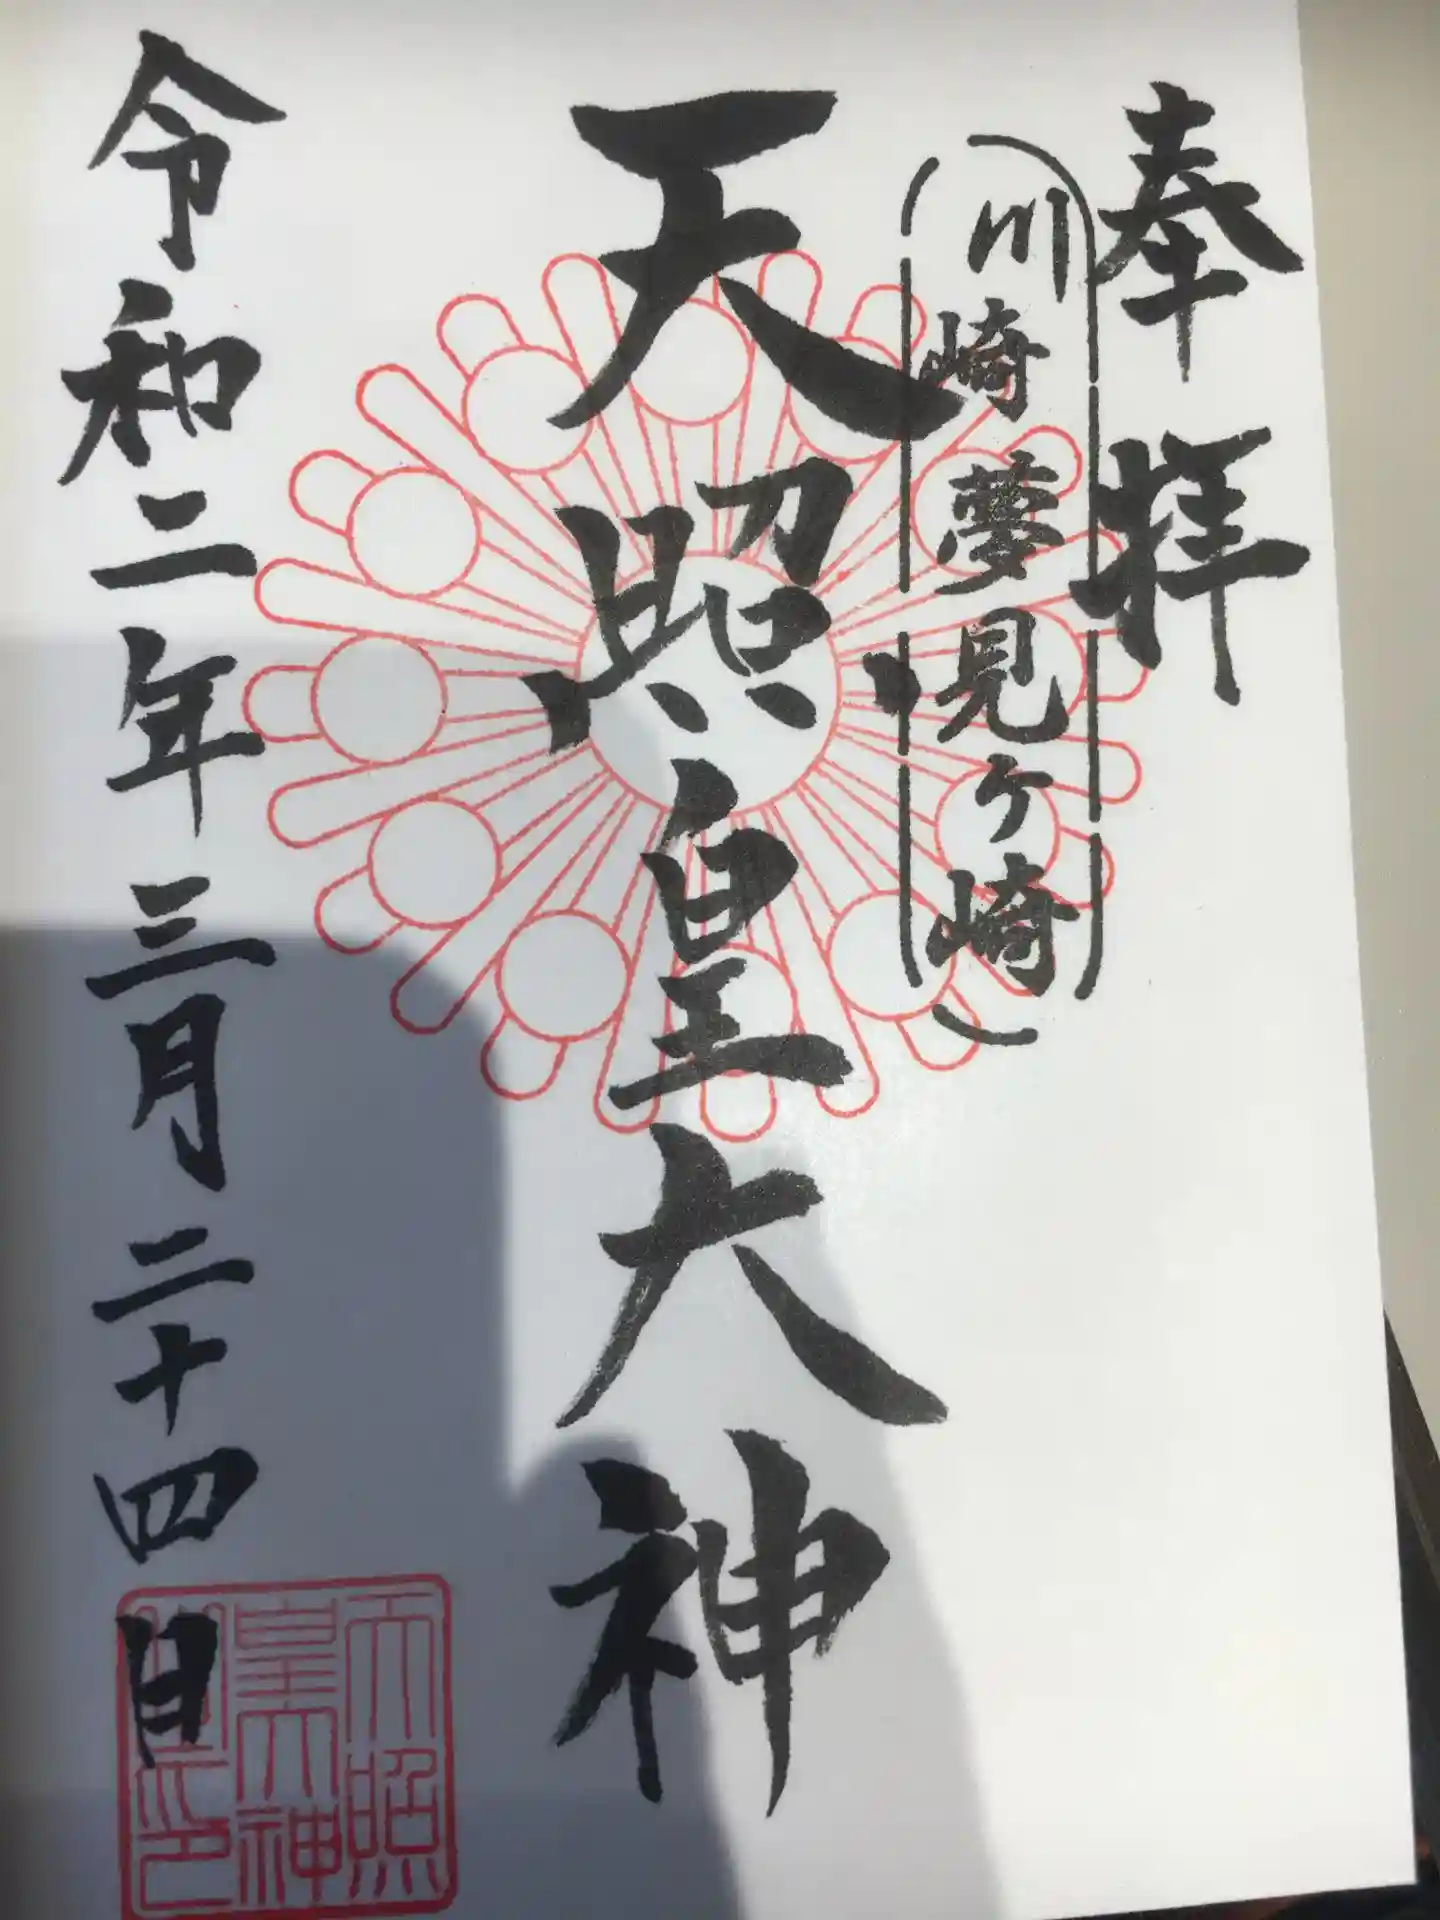 奉拝
（川崎夢見ヶ崎）
天照皇大神
令和二年三月二十四日
天照
皇大神